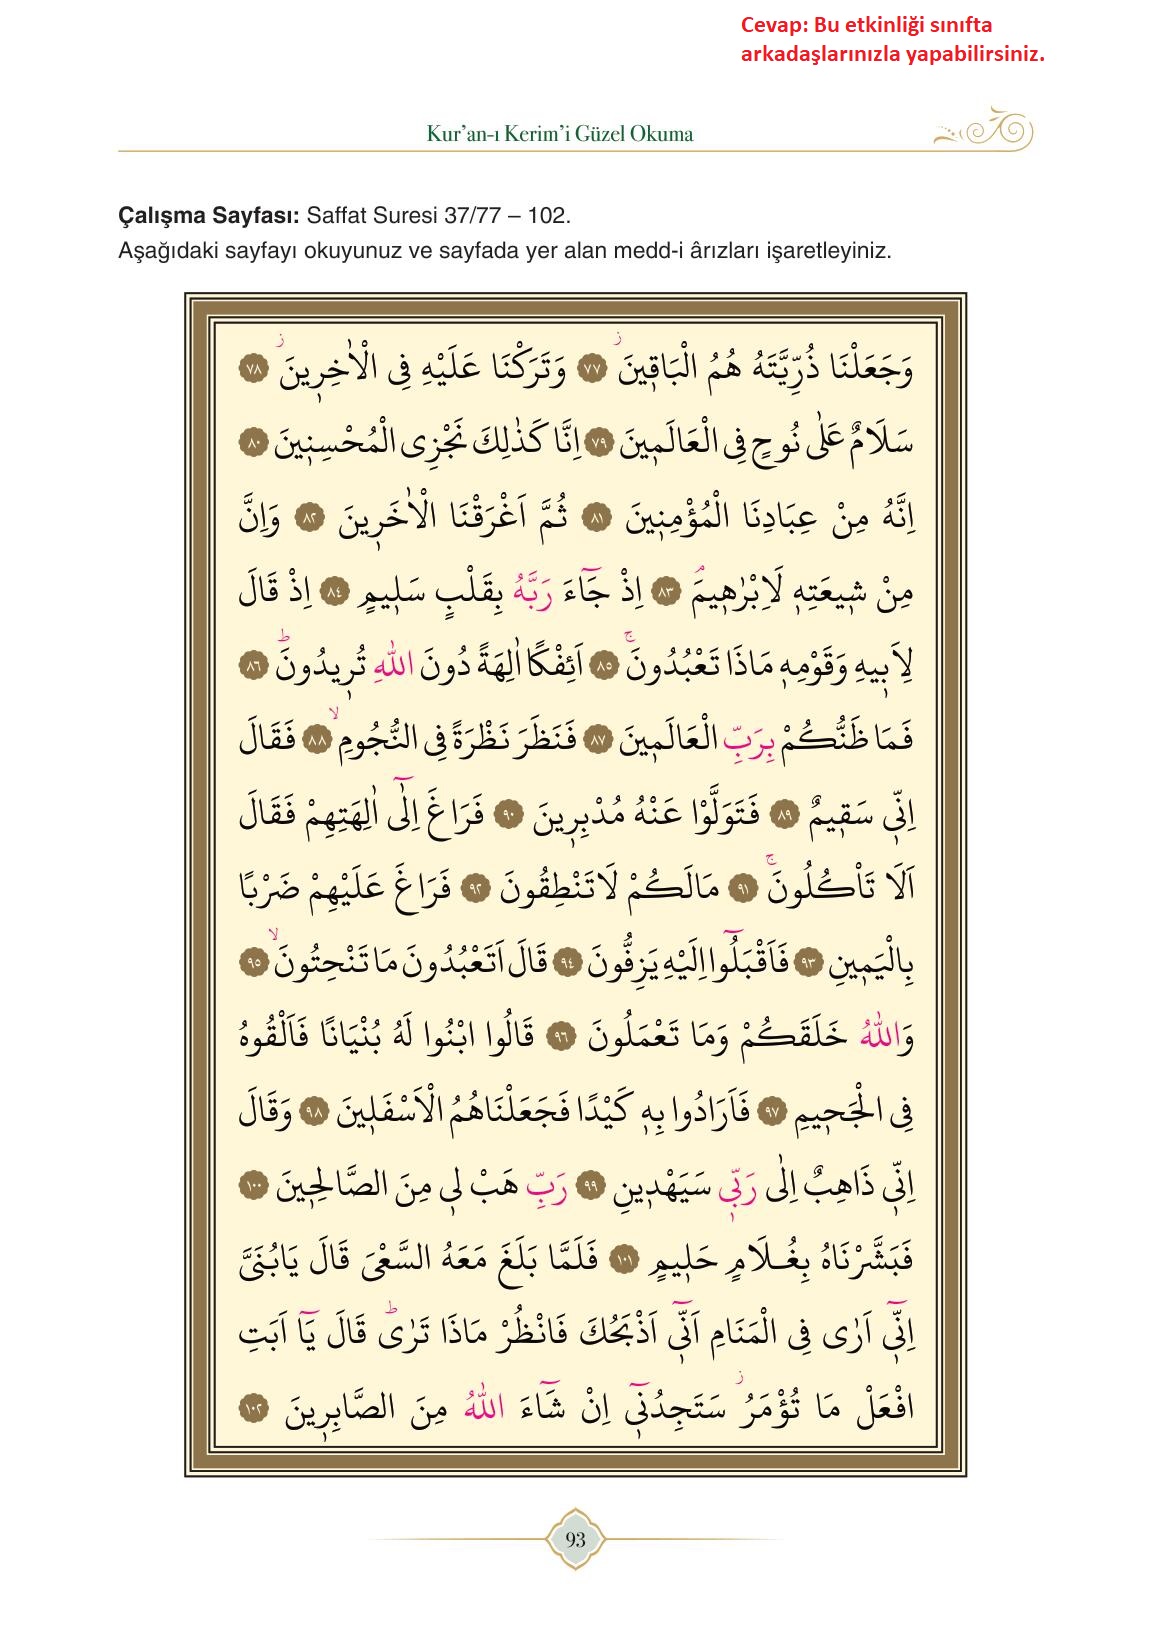 Cevap: Bu etkinliği sınıfta
arkadaşlarınızla yapabilirsiniz.
Kur’an-ı Kerim’i Güzel Okuma
Çalışma Sayfası: Saffat Suresi 37/77 – 102.
Aşağıdaki sayfayı okuyunuz ve sayfada yer alan medd-i ârızları işaretleyiniz.
وَجَعَلْنَا ذُرِّيَّتَهُ هُمُ الْبَاق۪ينَۘ ﴿٧٧﴾ وَتَرَكْنَا عَلَيْهِ فِى الْاٰخِر۪ينَۘ ﴿٧٨﴾
سَلَامٌ عَلٰى نُوحٍ فِى الْعَالَم۪ينَ ﴿٧٩﴾ اِنَّا كَذٰلِكَ نَجْزِى الْمُحْسِن۪ينَ ﴿٨٠﴾
اِنَّهُ مِنْ عِبَادِنَا الْمُؤْمِن۪ينَ ﴿٨١﴾ ثُمَّ اَغْرَقْنَا الْاٰخَر۪ينَ ﴿٨٢﴾ وَاِنَّ
مِنْ ش۪يعَتِه۪ لَاِبْرٰه۪يمَۢ ﴿٨٣﴾ اِذْ جَٓاءَ رَبَّهُ بِقَلْبٍ سَل۪يمٍ ﴿٨٤﴾ اِذْ قَالَ
لِاَب۪يهِ وَقَوْمِه۪ مَاذَا تَعْبُدُونَۚ ﴿٨٥﴾ اَئِفْكًا اٰلِهَةً دُونَ اللّٰهِ تُر۪يدُونَۜ ﴿٨٦﴾
فَمَا ظَنُّكُمْ بِرَبِّ الْعَالَم۪ينَ ﴿٨٧﴾ فَنَظَرَ نَظْرَةً فِى النُّجُومِۙ ﴿٨٨﴾ فَقَالَ
اِنّ۪ى سَق۪يمٌ ﴿٨٩﴾ فَتَوَلَّوْا عَنْهُ مُدْبِر۪ينَ ﴿٩٠﴾ فَرَاغَ اِلٰٓى اٰلِهَتِهِمْ فَقَالَ
اَلَا تَاْكُلُونَۚ ﴿٩١﴾ مَا لَكُمْ لَا تَنْطِقُونَ ﴿٩٢﴾ فَرَاغَ عَلَيْهِمْ ضَرْبًا
بِالْيَم۪ينِ ﴿٩٣﴾ فَاَقْبَلُٓوا اِلَيْهِ يَزِفُّونَ ﴿٩٤﴾ قَالَ اَتَعْبُدُونَ مَا تَنْحِتُونَۙ ﴿٩٥﴾
وَاللّٰهُ خَلَقَكُمْ وَمَا تَعْمَلُونَ ﴿٩٦﴾ قَالُوا ابْنُوا لَهُ بُنْيَانًا فَاَلْقُوهُ
فِى الْجَح۪يمِ ﴿٩٧﴾ فَاَرَادُوا بِه۪ كَيْدًا فَجَعَلْنَاهُمُ الْاَسْفَل۪ينَ ﴿٩٨﴾ وَقَالَ
اِنّ۪ى ذَاهِبٌ اِلٰى رَبّ۪ى سَيَهْد۪ينِ ﴿٩٩﴾ رَبِّ هَبْ ل۪ى مِنَ الصَّالِح۪ينَ ﴿١٠٠﴾
فَبَشَّرْنَاهُ بِغُلَامٍ حَل۪يمٍ ﴿١٠١﴾ فَلَمَّا بَلَغَ مَعَهُ السَّعْىَ قَالَ يَابُنَىَّ
اِنّ۪ٓى اَرٰى فِى الْمَنَامِ اَنّ۪ٓى اَذْبَحُكَ فَانْظُرْ مَاذَا تَرٰىۜ قَالَ يَٓا اَبَتِ
افْعَلْ مَا تُؤْمَرُۘ سَتَجِدُن۪ٓى اِنْ شَٓاءَ اللّٰهُ مِنَ الصَّابِر۪ينَ ﴿١٠٢﴾
93